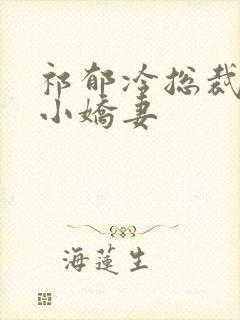 祁郁冷总裁
小娇妻
海莲生